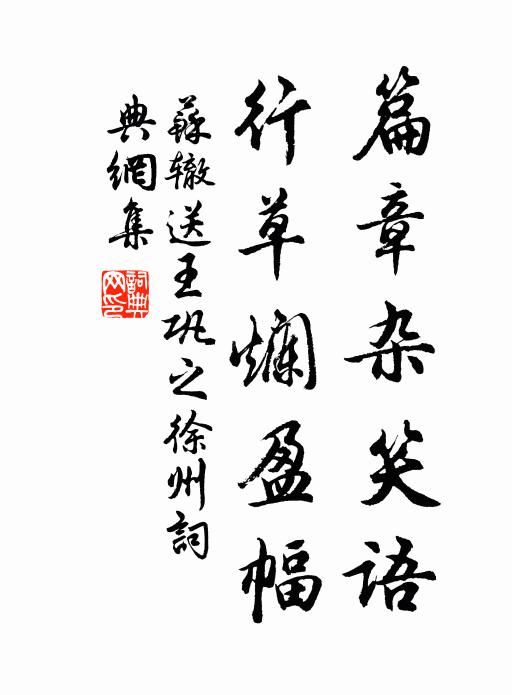 篇章杂笑语
行草爛盈幅
蘇辙送王巩之徐州詞
典網集
詞典
网印